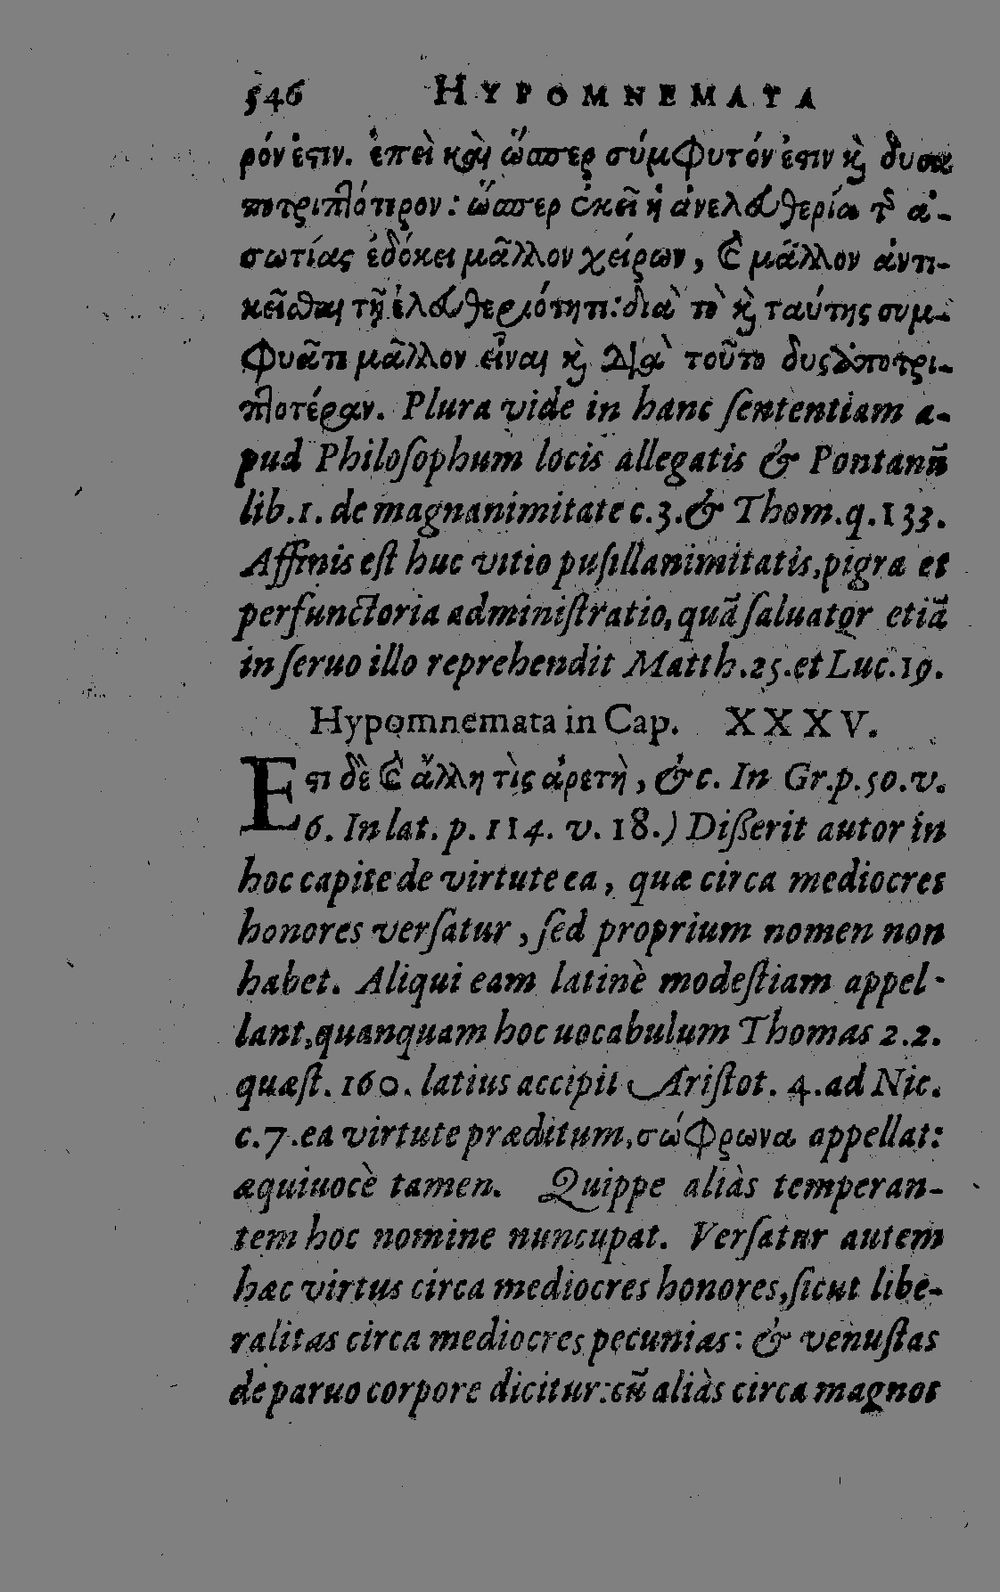 546 HYPOMNEMATA
ρόν ἐστιν. ἐπεὶ καὶ ὥσπερ σύμφυτόν ἐστιν καὶ δυσα
ποτριπτότερον: ὥσπερ ἐκεῖ ἡ ἀνελευθερία τῆς ἀ-
σωτίας ἐδόκει μᾶλλον χείρων, καὶ μᾶλλον ἀντι-
κεῖσθαι τῇ ἐλευθεριότητι: διὰ τὸ καὶ ταύτης συμ-
φυᾶτι μᾶλλον εἶναι καὶ Διὰ τοῦτο δυσαποτρι-
πτοτέραν. Plura vide in hanc ſententiam a-
pud Philoſophum locis allegatis & Pontanũ
lib.1. de magnanimitate c.3.& Thom.q.133.
Affinis eſt huc vitio puſillanimitatis,pigra et
perfunctoria adminiſtratio,quã ſaluator etiã
in ſeruo illo reprehendit Matth.25.et Luc.19.
Hypomnemata in Cap. XXXV.
Εστι δὲ καὶ ἄλλη τὶς ἀρετὴ, &c. In Gr.p.50.v.
6. In lat. p. 114. v. 18.) Diſſerit autor in
hoc capite de virtute ea, quæ circa mediocres
honores verſatur, ſed proprium nomen non
habet. Aliqui eam latinè modeſtiam appel-
lant,quanquam hoc uocabulum Thomas 2.2.
quæſt. 160. latius accipit Ariſtot. 4.ad Nic.
c.7.ea virtute præditum,σώφρωνα appellat:
æquiuocè tamen. Quippe aliàs temperan-
tem hoc nomine nuncupat. Verſatur autem
hæc virtus circa mediocres honores,ſicut libe-
ralitas circa mediocres pecunias: & venuſtas
de paruo corpore dicitur:cũ aliàs circa magnos